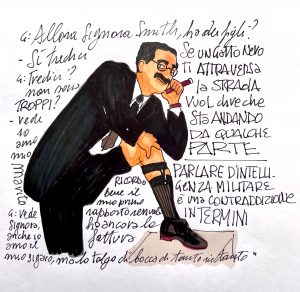 G: Allora Signora Smith, ha dei figli?
- Sì tredici
G: Tredici?
non sono
TROPPI?
- vede
io
amo
mio
marito
G: vede
Signora,
anche io
amo il
mio sigaro, ma lo tolgo di bocca di tanto in tanto"
RICORDO
bene il
mio primo
rapporto sessuale
ho ancora la
fattura
SE UN GATTO NERO
TI ATTRAVERSA
la STRADA
VUOL dire che
STA ANDANDO
DA QUALCHE
PARTE
PARLARE D'INTELLI
GENZA MILITARE
è una CONTRADDIZIONE
IN TERMINI